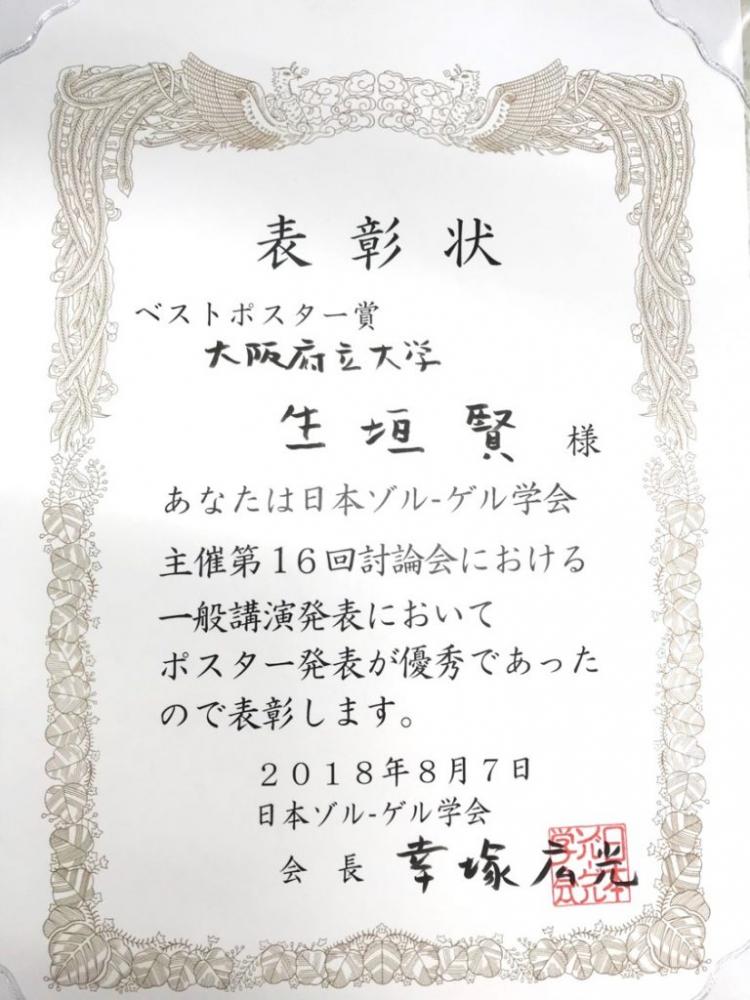 表彰状
ベストポスター賞
大阪府立大学
生垣賢 様
あなたは日本ゾル-ゲル学会
主催第16回討論会における
一般講演発表において
ポスター発表が優秀であった
ので表彰します。
2018年8月7日
日本ゾル-ゲル学会
会長 幸塚広光
日本
ゾル-ゲル
学会